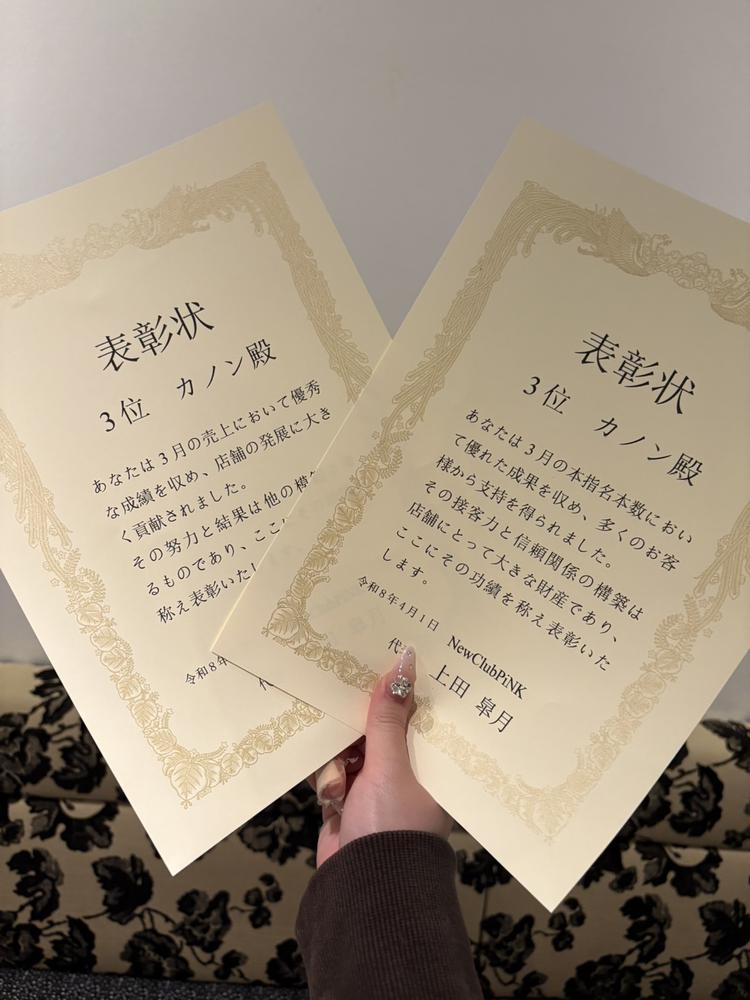 表彰状
3位 カノン殿
あなたは3月の売上において優秀
な成績を収め、店舗の発展に大き
く貢献されました。
その努力と結果は他の模
るものであり、ここに
称え表彰いたし
令和8年
代
表彰状
3位 カノン殿
あなたは3月の本指名本数におい
て優れた成果を収め、多くのお客
様から支持を得られました。
その接客力と信頼関係の構築は
店舗にとって大きな財産であり、
ここにその功績を称え表彰いた
します。
令和8年4月1日 NewClubPiNK
代 上田 皐月